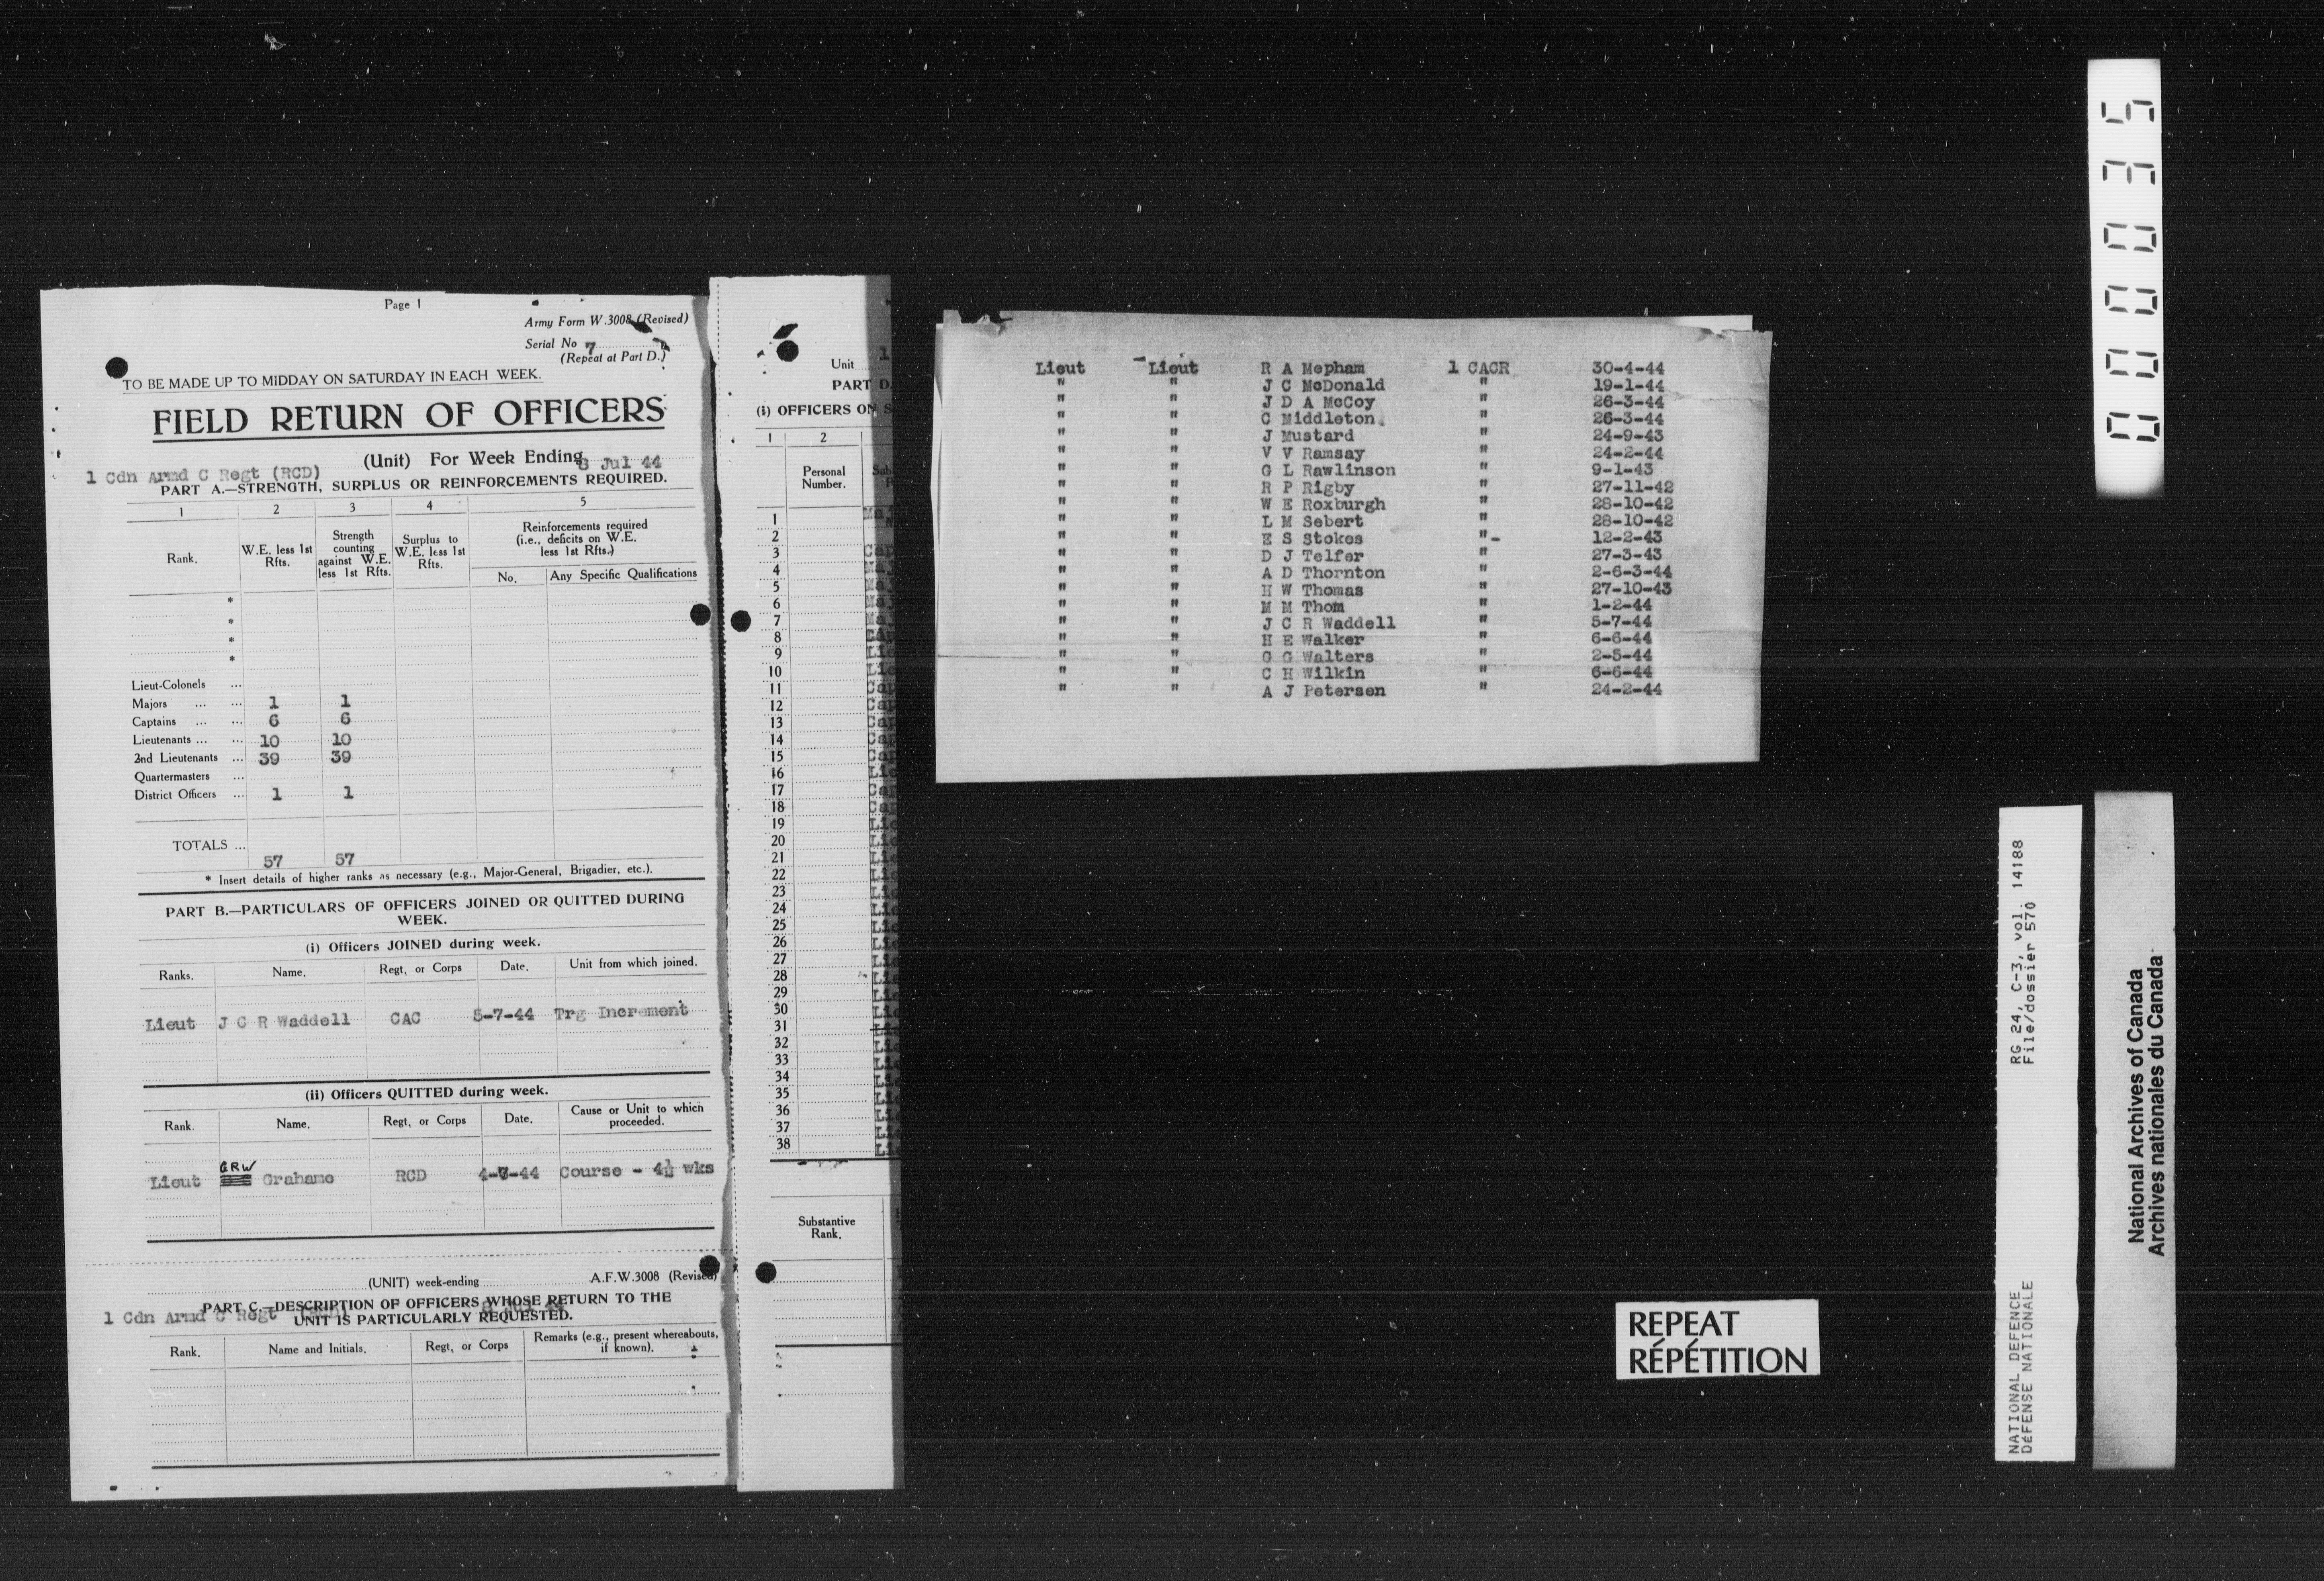 Page 1
Army Form W.3008 (Revised)
Serial No 7
(Repeat at Part D.)
TO BE MADE UP TO MIDDAY ON SATURDAY IN EACH WEEK.
FIELD RETURN OF OFFICERS
1 Cdn Armd C Regt (RCD) (Unit) For Week Ending 8 Jul 44
PART A.—STRENGTH, SURPLUS OR REINFORCEMENTS REQUIRED.
1 2 3 4 5
Rank. W.E. less 1st Rfts. Strength counting against W.E. less 1st Rfts. Surplus to W.E. less 1st Rfts. Reinforcements required (i.e., deficits on W.E. less 1st Rfts.)
No. Any Specific Qualifications
*
*
*
*
Lieut-Colonels ...
Majors ... ... 1 1
Captains ... ... 6 6
Lieutenants ... ... 10 10
2nd Lieutenants ... 39 39
Quartermasters ...
District Officers ... 1 1
TOTALS ... 57 57
* Insert details of higher ranks as necessary (e.g., Major-General, Brigadier, etc.).
PART B.—PARTICULARS OF OFFICERS JOINED OR QUITTED DURING
WEEK.
(i) Officers JOINED during week.
Ranks. Name. Regt. or Corps Date. Unit from which joined.
Lieut J C R Waddell CAC 5-7-44 Trg Increment
(ii) Officers QUITTED during week.
Rank. Name. Regt. or Corps Date. Cause or Unit to which proceeded.
GRW
Lieut Grahame RCD 4-7-44 Course - 4½ wks
(UNIT) week-ending A.F.W.3008 (Revised)
1 Cdn Armd C Regt
PART C.—DESCRIPTION OF OFFICERS WHOSE RETURN TO THE
UNIT IS PARTICULARLY REQUESTED.
Rank. Name and Initials. Regt. or Corps Remarks (e.g., present whereabouts, if known).
Unit 1
PART D.
(i) OFFICERS ON S
1 2
Personal Number.
1
2
3
4
5
6
7
8
9
10
11
12
13
14
15
16
17
18
19
20
21
22
23
24
25
26
27
28
29
30
31
32
33
34
35
36
37
38
Substantive
Rank.
Lieut Lieut R A Mepham 1 CACR 30-4-44
" " J C McDonald " 19-1-44
" " J D A McCoy " 26-3-44
" " C Middleton " 26-3-44
" " J Mustard " 24-9-43
" " V V Ramsay " 24-2-44
" " G L Rawlinson " 9-1-43
" " R P Rigby " 27-11-42
" " W E Roxburgh " 28-10-42
" " L M Sebert " 28-10-42
" " E S Stokes "- 12-2-43
" " D J Telfer " 27-3-43
" " A D Thornton " 2-6-3-44
" " H W Thomas " 27-10-43
" " M M Thom " 1-2-44
" " J C R Waddell " 5-7-44
" " H E Walker " 6-6-44
" " G G Walters " 2-5-44
" " C H Wilkin " 6-6-44
" " A J Petersen " 24-2-44
REPEAT
RÉPÉTITION
000035
RG 24, C-3, vol. 14188
File/dossier 570
NATIONAL DEFENCE
DÉFENSE NATIONALE
National Archives of Canada
Archives nationales du Canada